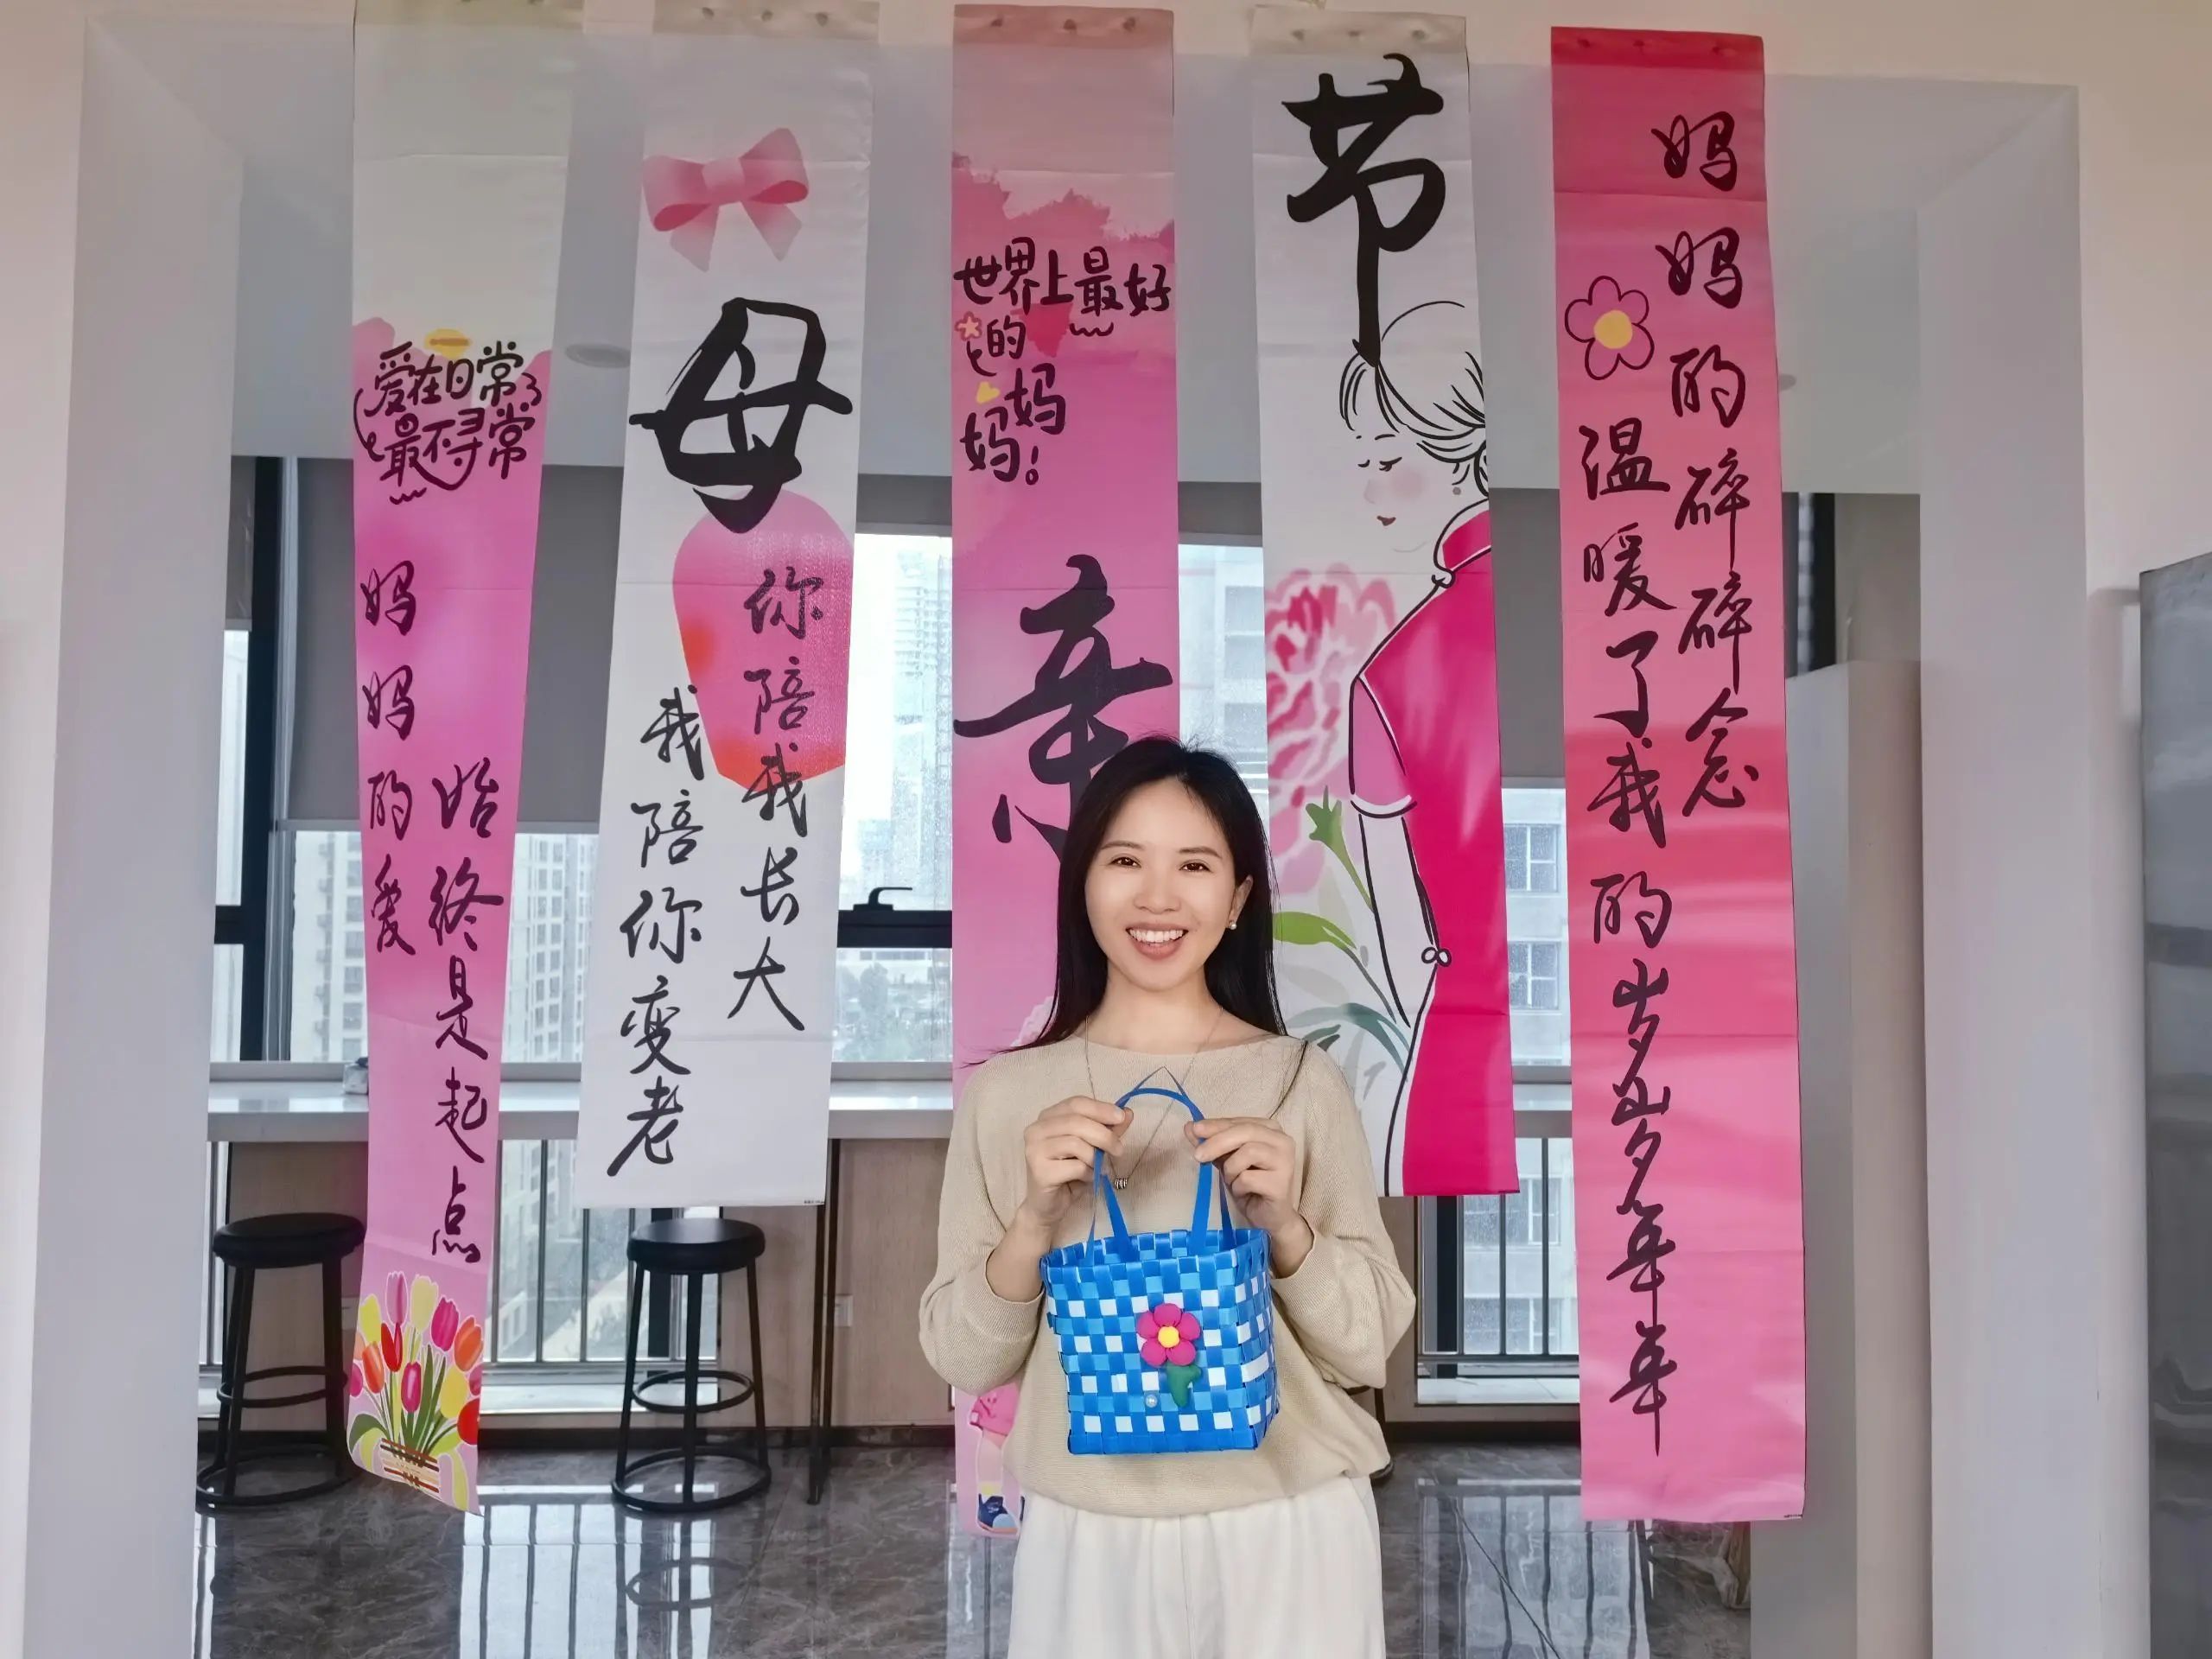 爱在日常
最不寻常
妈妈的爱
始终是起点
母
你陪我长大
我陪你变老
世界上最好
的
妈妈!
亲
节
妈妈的碎碎念
温暖了我的岁岁年年